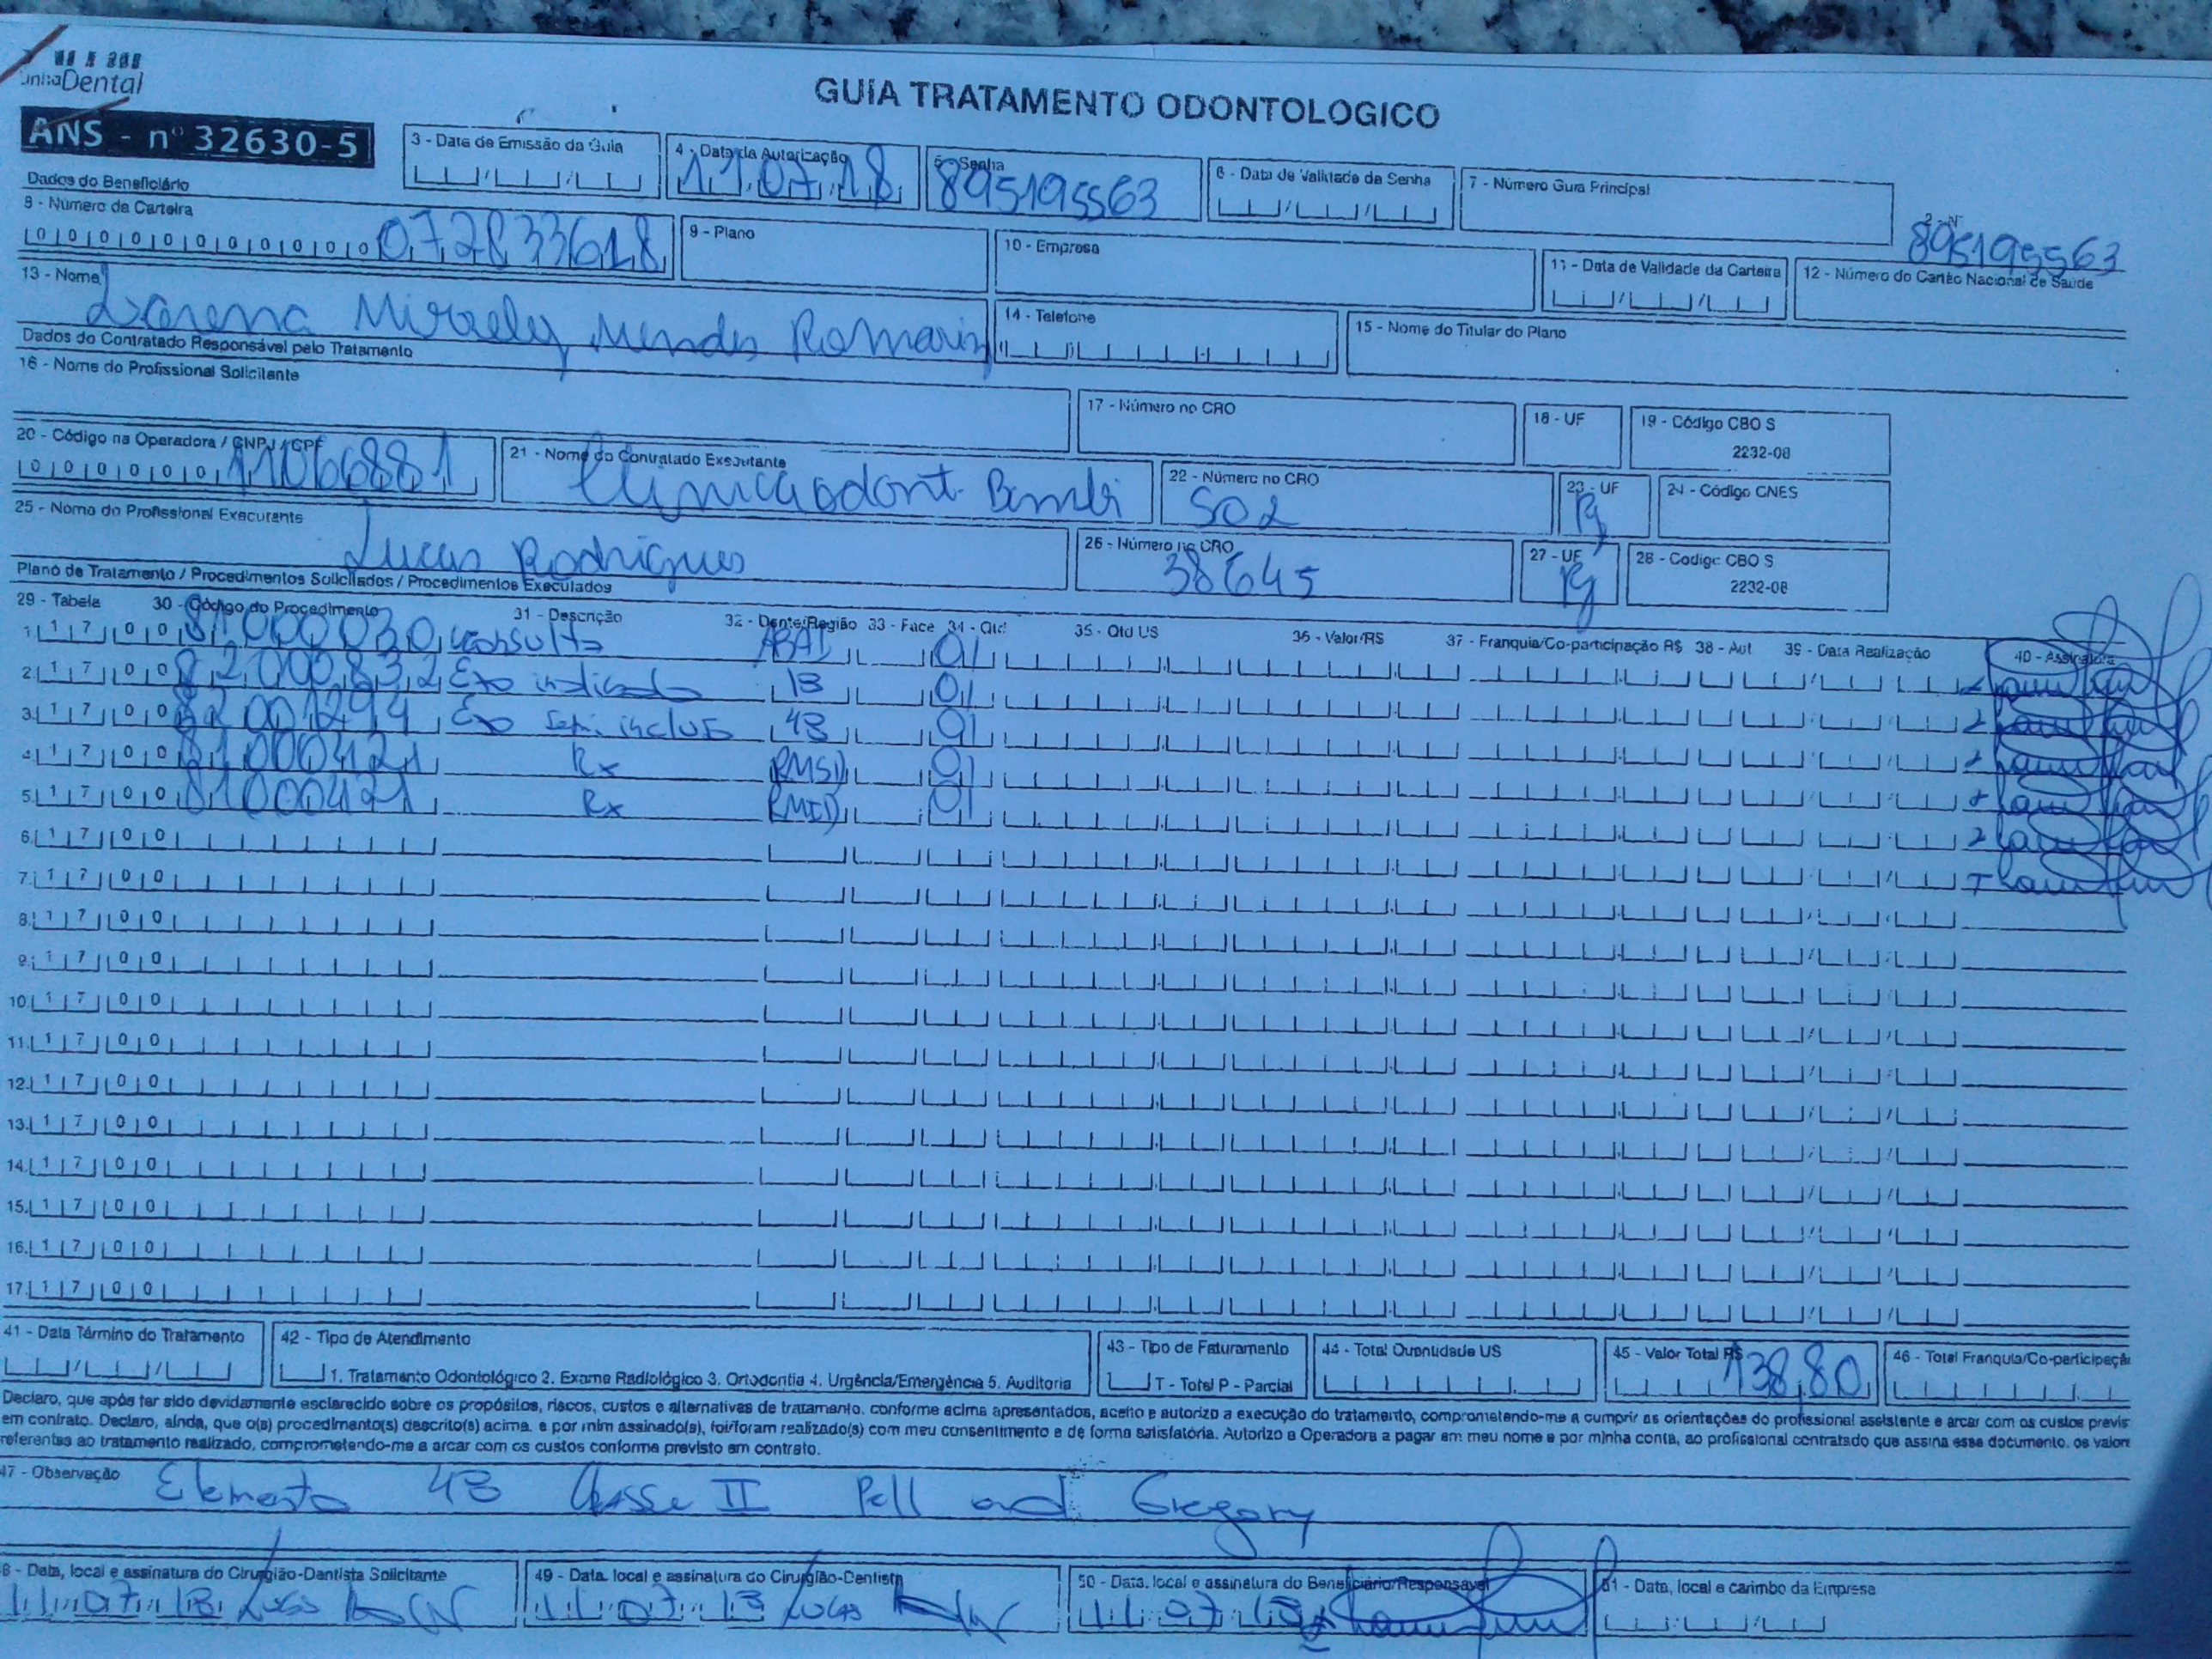 GUIA TRATAMENTO ODONTOLOGICO
ANS - nº 32630-5
3 - Data de Emissão da Guia
4 - Data da Autorização
11 07 18
5 - Senha
8951195563
6 - Data de Validade da Senha
7 - Número Guia Principal
2ª via
8951195563
Dados do Beneficiário
8 - Número da Carteira
9 - Plano
10 - Empresa
11 - Data de Validade da Carteira
12 - Número do Cartão Nacional de Saúde
13 - Nome
14 - Telefone
15 - Nome do Titular do Plano
Dados do Contratado Responsável pelo Tratamento
16 - Nome do Profissional Solicitante
17 - Número no CRO
18 - UF
19 - Código CBO S
2232-08
20 - Código na Operadora / CNPJ / CPF
21 - Nome do Contratado Executante
22 - Número no CRO
502
23 - UF
24 - Código CNES
25 - Nome do Profissional Executante
Lucas Rodrigues
26 - Número no CRO
38645
27 - UF
28 - Codigo CBO S
2232-08
Plano de Tratamento / Procedimentos Solicitados / Procedimentos Executados
29 - Tabela 30 - Código do Procedimento 31 - Descrição 32 - Dente/Região 33 - Face 34 - Qtd 35 - Qtd US 36 - Valor/R$ 37 - Franquia/Co-participação R$ 38 - Aut 39 - Data Realização 40 - Assinatura
1. 1 7 0 0 81000030 consulta 01
2. 1 7 0 0 82000832 Exo indicada 18 01
3. 1 7 0 0 Exo semi incluso 48 01
4. 1 7 0 0 81000421 Rx RMSD 01
5. 1 7 0 0 81000421 Rx RMID 01
6. 1 7 0 0
7. 1 7 0 0
8. 1 7 0 0
9. 1 7 0 0
10. 1 7 0 0
11. 1 7 0 0
12. 1 7 0 0
13. 1 7 0 0
14. 1 7 0 0
15. 1 7 0 0
16. 1 7 0 0
17. 1 7 0 0
41 - Data Término do Tratamento
42 - Tipo de Atendimento
1. Tratamento Odontológico 2. Exame Radiológico 3. Ortodontia 4. Urgência/Emergência 5. Auditoria
43 - Tipo de Faturamento
T - Total P - Parcial
44 - Total Quantidade US
45 - Valor Total R$
138,80
46 - Total Franquia/Co-participaçã
Declaro, que após ter sido devidamente esclarecido sobre os propósitos, riscos, custos e alternativas de tratamento, conforme acima apresentados, aceito e autorizo a execução do tratamento, comprometendo-me a cumprir as orientações do profissional assistente e arcar com os custos previs
em contrato. Declaro, ainda, que o(s) procedimento(s) descrito(s) acima, e por mim assinado(s), foi/foram realizado(s) com meu consentimento e de forma satisfatória. Autorizo a Operadora a pagar em meu nome e por minha conta, ao profissional contratado que assina esse documento, os valore
referentes ao tratamento realizado, comprometendo-me a arcar com os custos conforme previsto em contrato.
47 - Observação
Elemento 48 Classe II Pell and Gregory
8 - Data, local e assinatura do Cirurgião-Dentista Solicitante
11 07 18
49 - Data, local e assinatura do Cirurgião-Dentista
11 07 18
50 - Data, local e assinatura do Beneficiário/Responsável
11 07 18
51 - Data, local e carimbo da Empresa